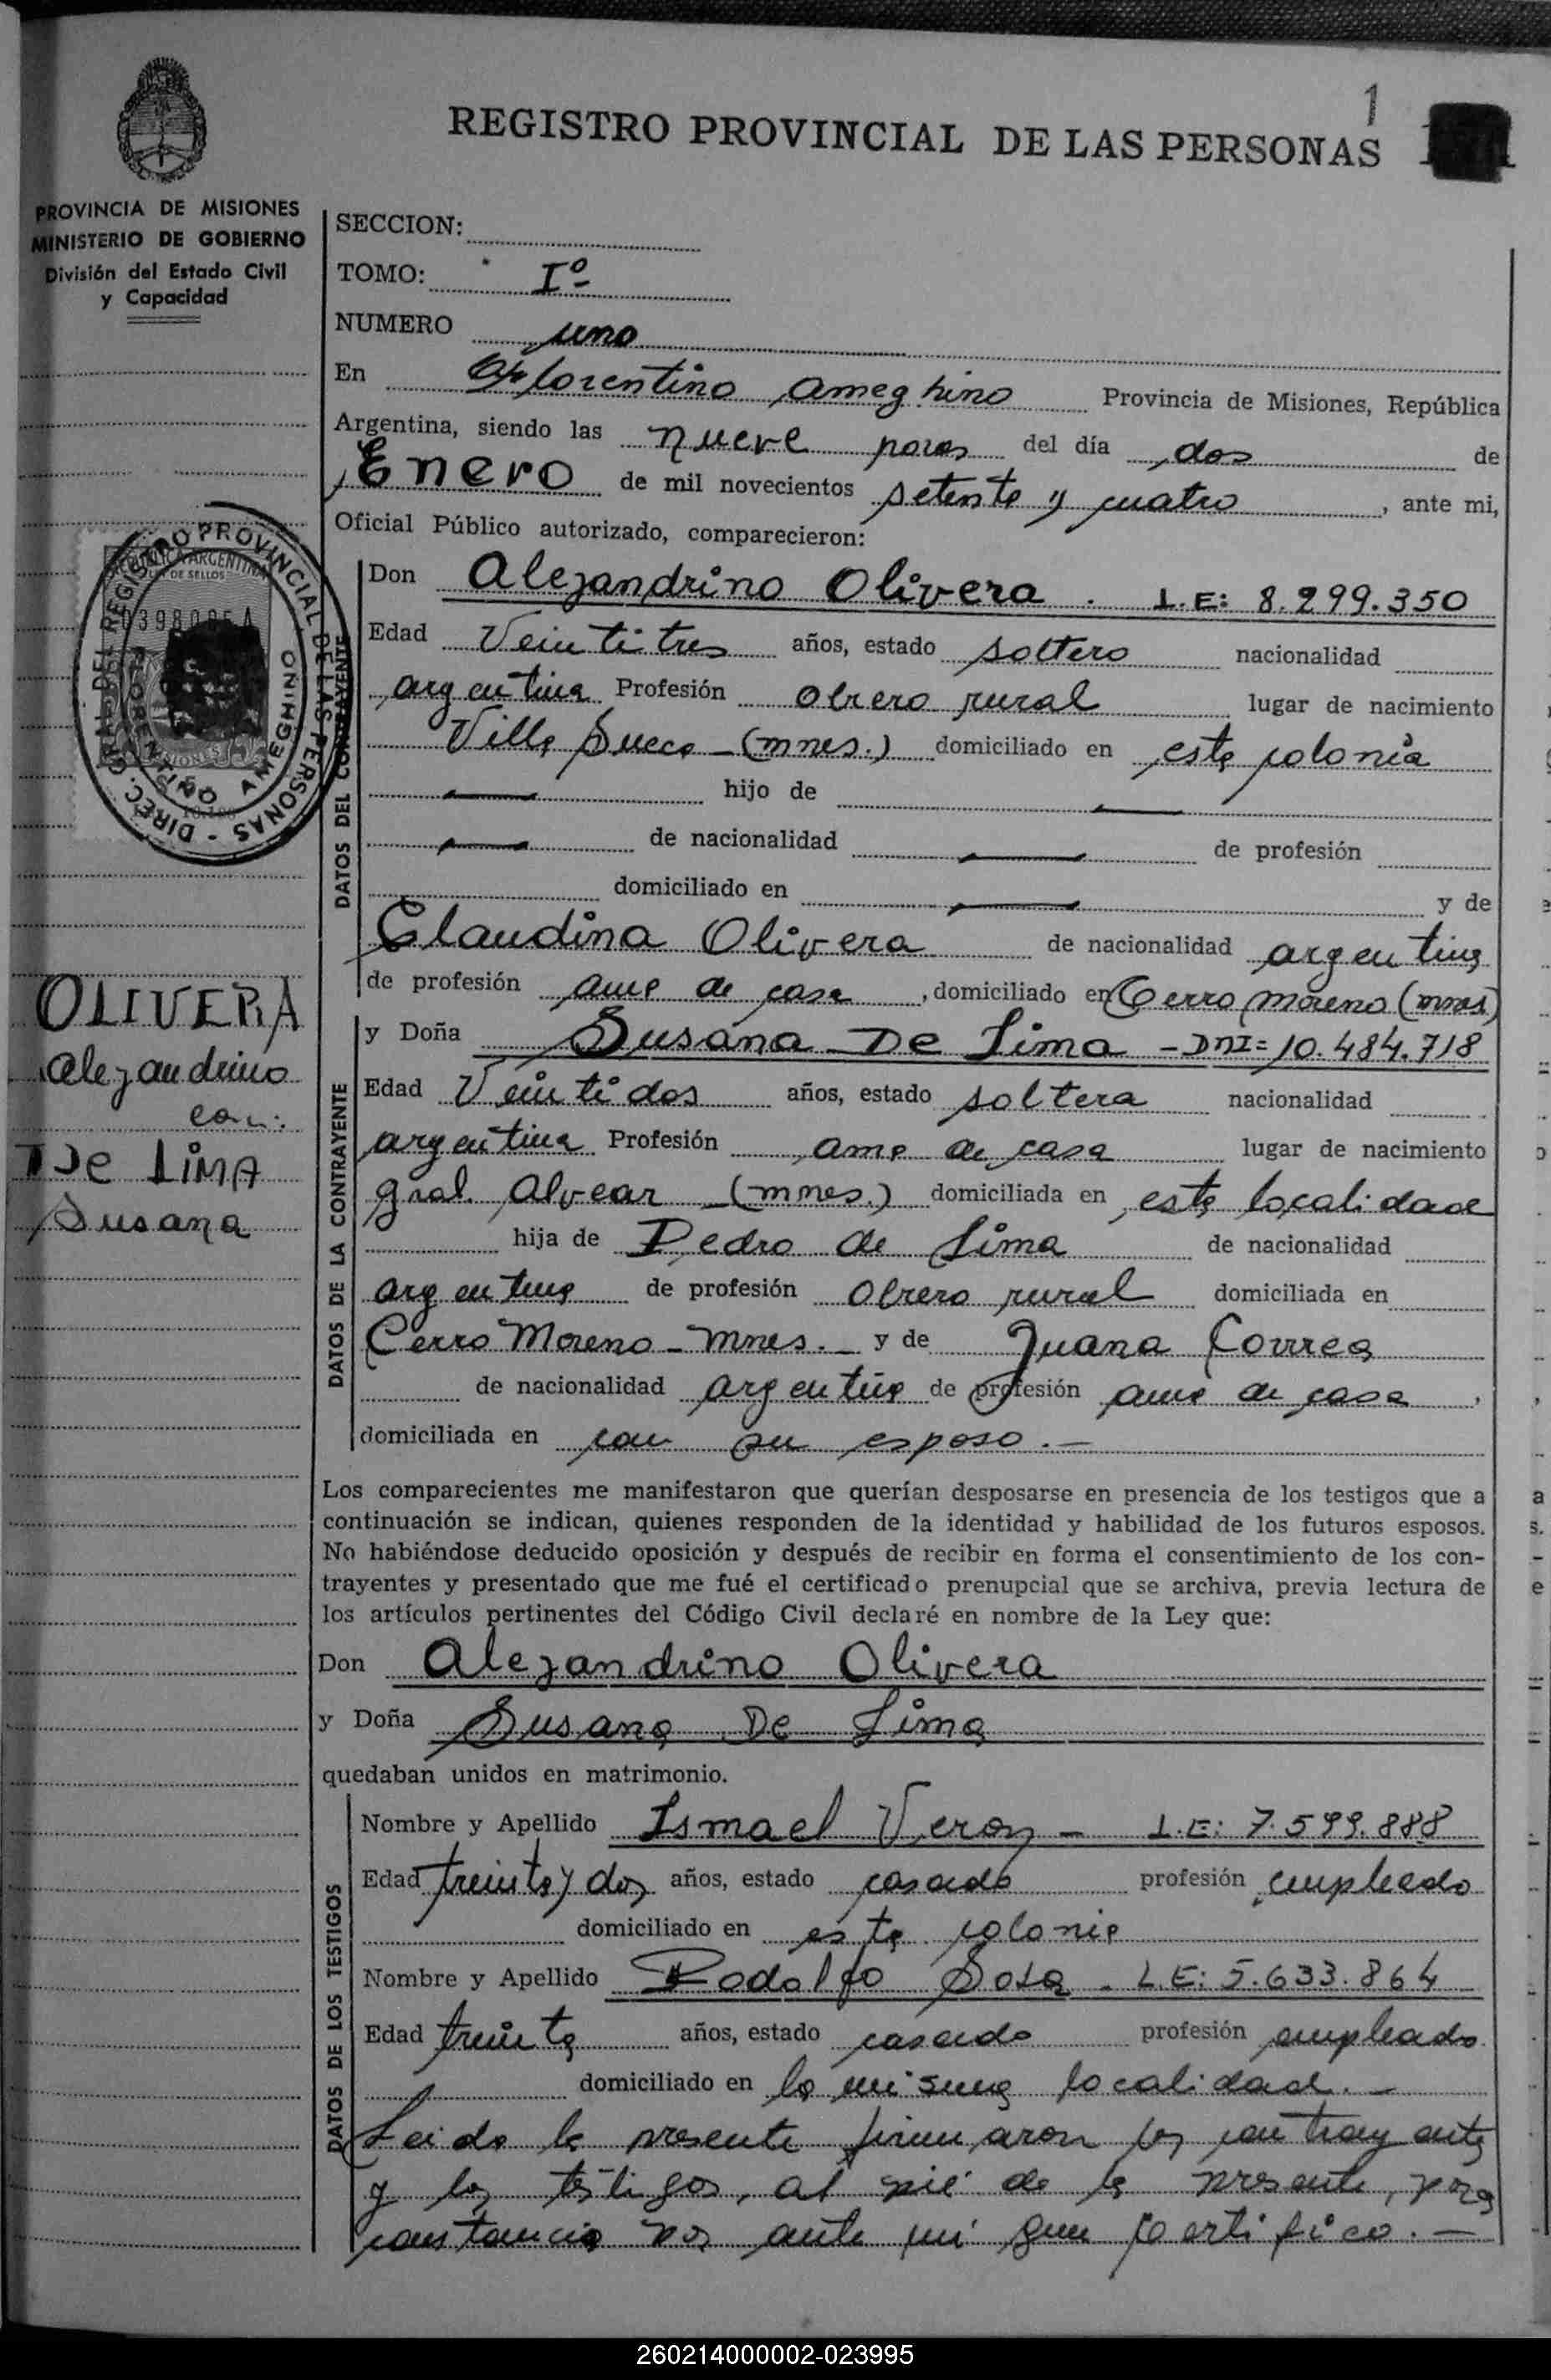 1
REGISTRO PROVINCIAL DE LAS PERSONAS
PROVINCIA DE MISIONES
MINISTERIO DE GOBIERNO
División del Estado Civil
y Capacidad
SECCION:
TOMO: Iº
NUMERO uno
En Florentino Ameghino Provincia de Misiones, República
Argentina, siendo las nueve horas del día dos de
Enero de mil novecientos setenta y cuatro, ante mi,
Oficial Público autorizado, comparecieron:
DIREC. GRAL. DEL REGISTRO PROVINCIAL DE LAS PERSONAS
FLORENTINO AMEGHINO
DATOS DEL CONTRAYENTE
Don Alejandrino Olivera. L.E: 8.299.350
Edad Veintitres años, estado soltero nacionalidad
argentina Profesión obrero rural lugar de nacimiento
Villa Sueca - (mnes.) domiciliado en esta colonia
hijo de
de nacionalidad de profesión
domiciliado en y de
Claudina Olivera de nacionalidad argentina
de profesión ama de casa, domiciliado en Cerro Moreno (mnes)
OLIVERA
Alejandrino
con:
De LIMA
Susana
DATOS DE LA CONTRAYENTE
y Doña Susana De Lima - DNI= 10.484.718
Edad Veintidos años, estado soltera nacionalidad
argentina Profesión ama de casa lugar de nacimiento
Gral. Alvear (mnes.) domiciliada en esta localidad
hija de Pedro de Lima de nacionalidad
argentina de profesión Obrero rural domiciliada en
Cerro Moreno - mnes. y de Juana Correa
de nacionalidad argentina de profesión ama de casa,
domiciliada en con su esposo.-
Los comparecientes me manifestaron que querían desposarse en presencia de los testigos que a
continuación se indican, quienes responden de la identidad y habilidad de los futuros esposos.
No habiéndose deducido oposición y después de recibir en forma el consentimiento de los con-
trayentes y presentado que me fué el certificado prenupcial que se archiva, previa lectura de
los artículos pertinentes del Código Civil declaré en nombre de la Ley que:
Don Alejandrino Olivera
y Doña Susana De Lima
quedaban unidos en matrimonio.
DATOS DE LOS TESTIGOS
Nombre y Apellido Ismael Veron - L.E: 7.599.888
Edad treinta y dos años, estado casado profesión empleado
domiciliado en esta colonia
Nombre y Apellido Rodolfo Sosa - L.E: 5.633.864
Edad treinta años, estado casado profesión empleado
domiciliado en la misma localidad.-
Leida la presente firmaron los contrayentes
y los testigos, al pié de la presente, para
constancia por ante mí que certifico.-
260214000002-023995